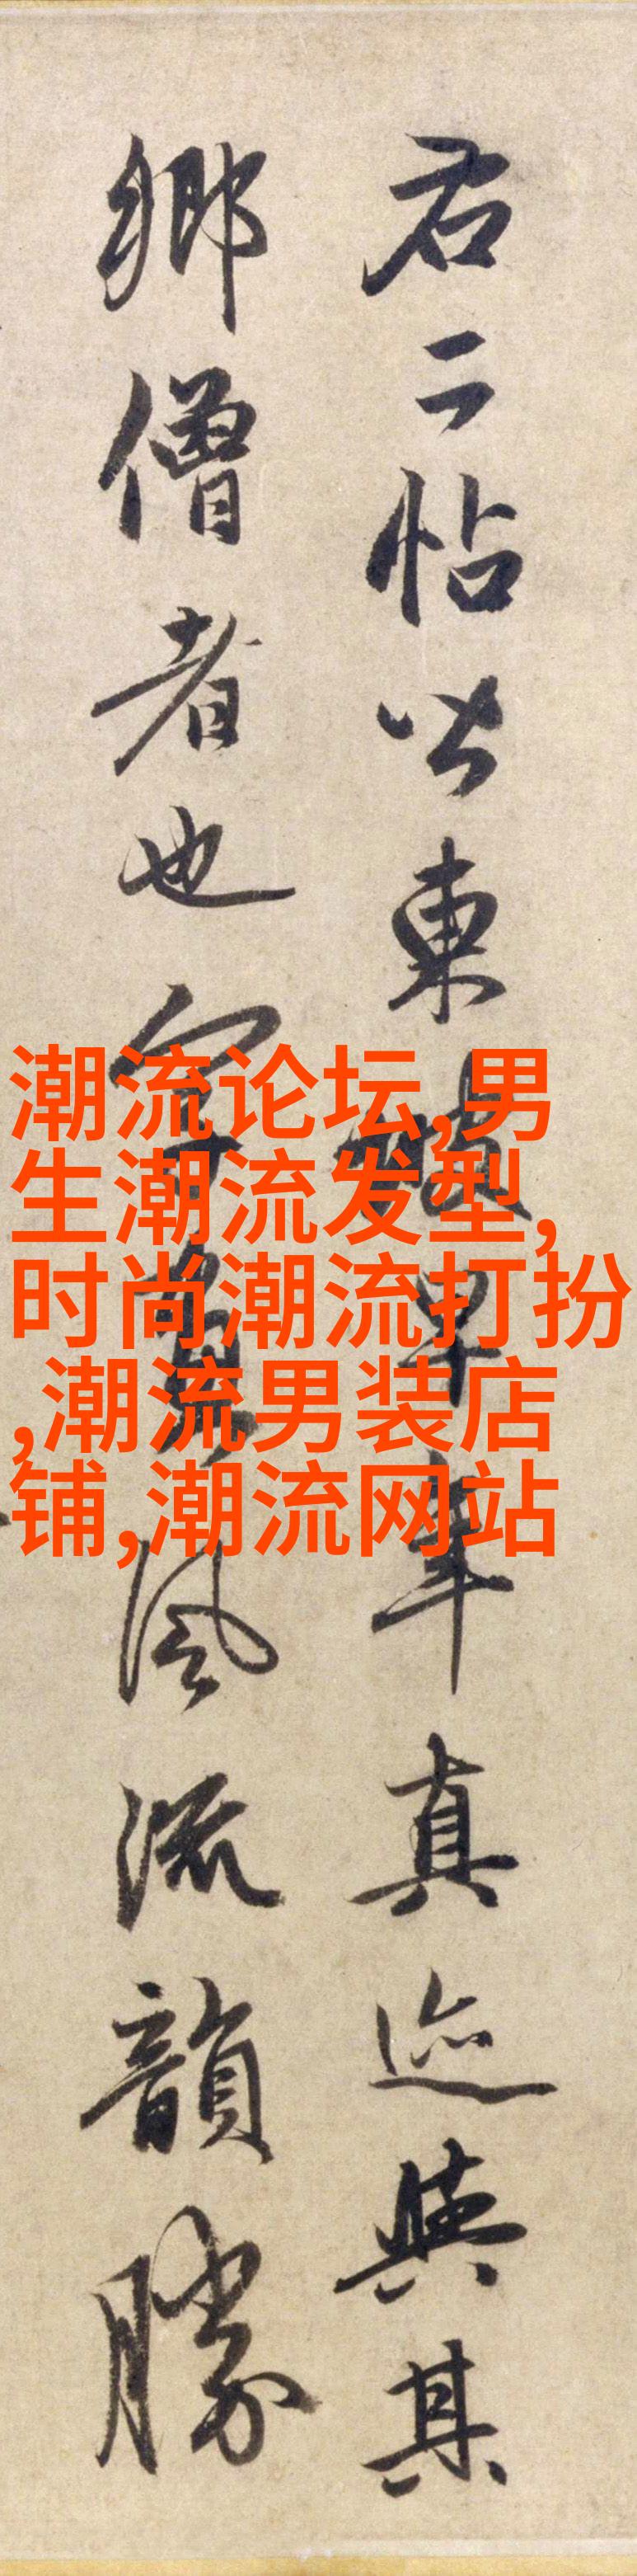 右二帖皆東坡早年真迹與其
鄉僧者也字畫風流韻勝
潮流论坛,男
生潮流发型,
时尚潮流打扮
,潮流男装店
铺,潮流网站